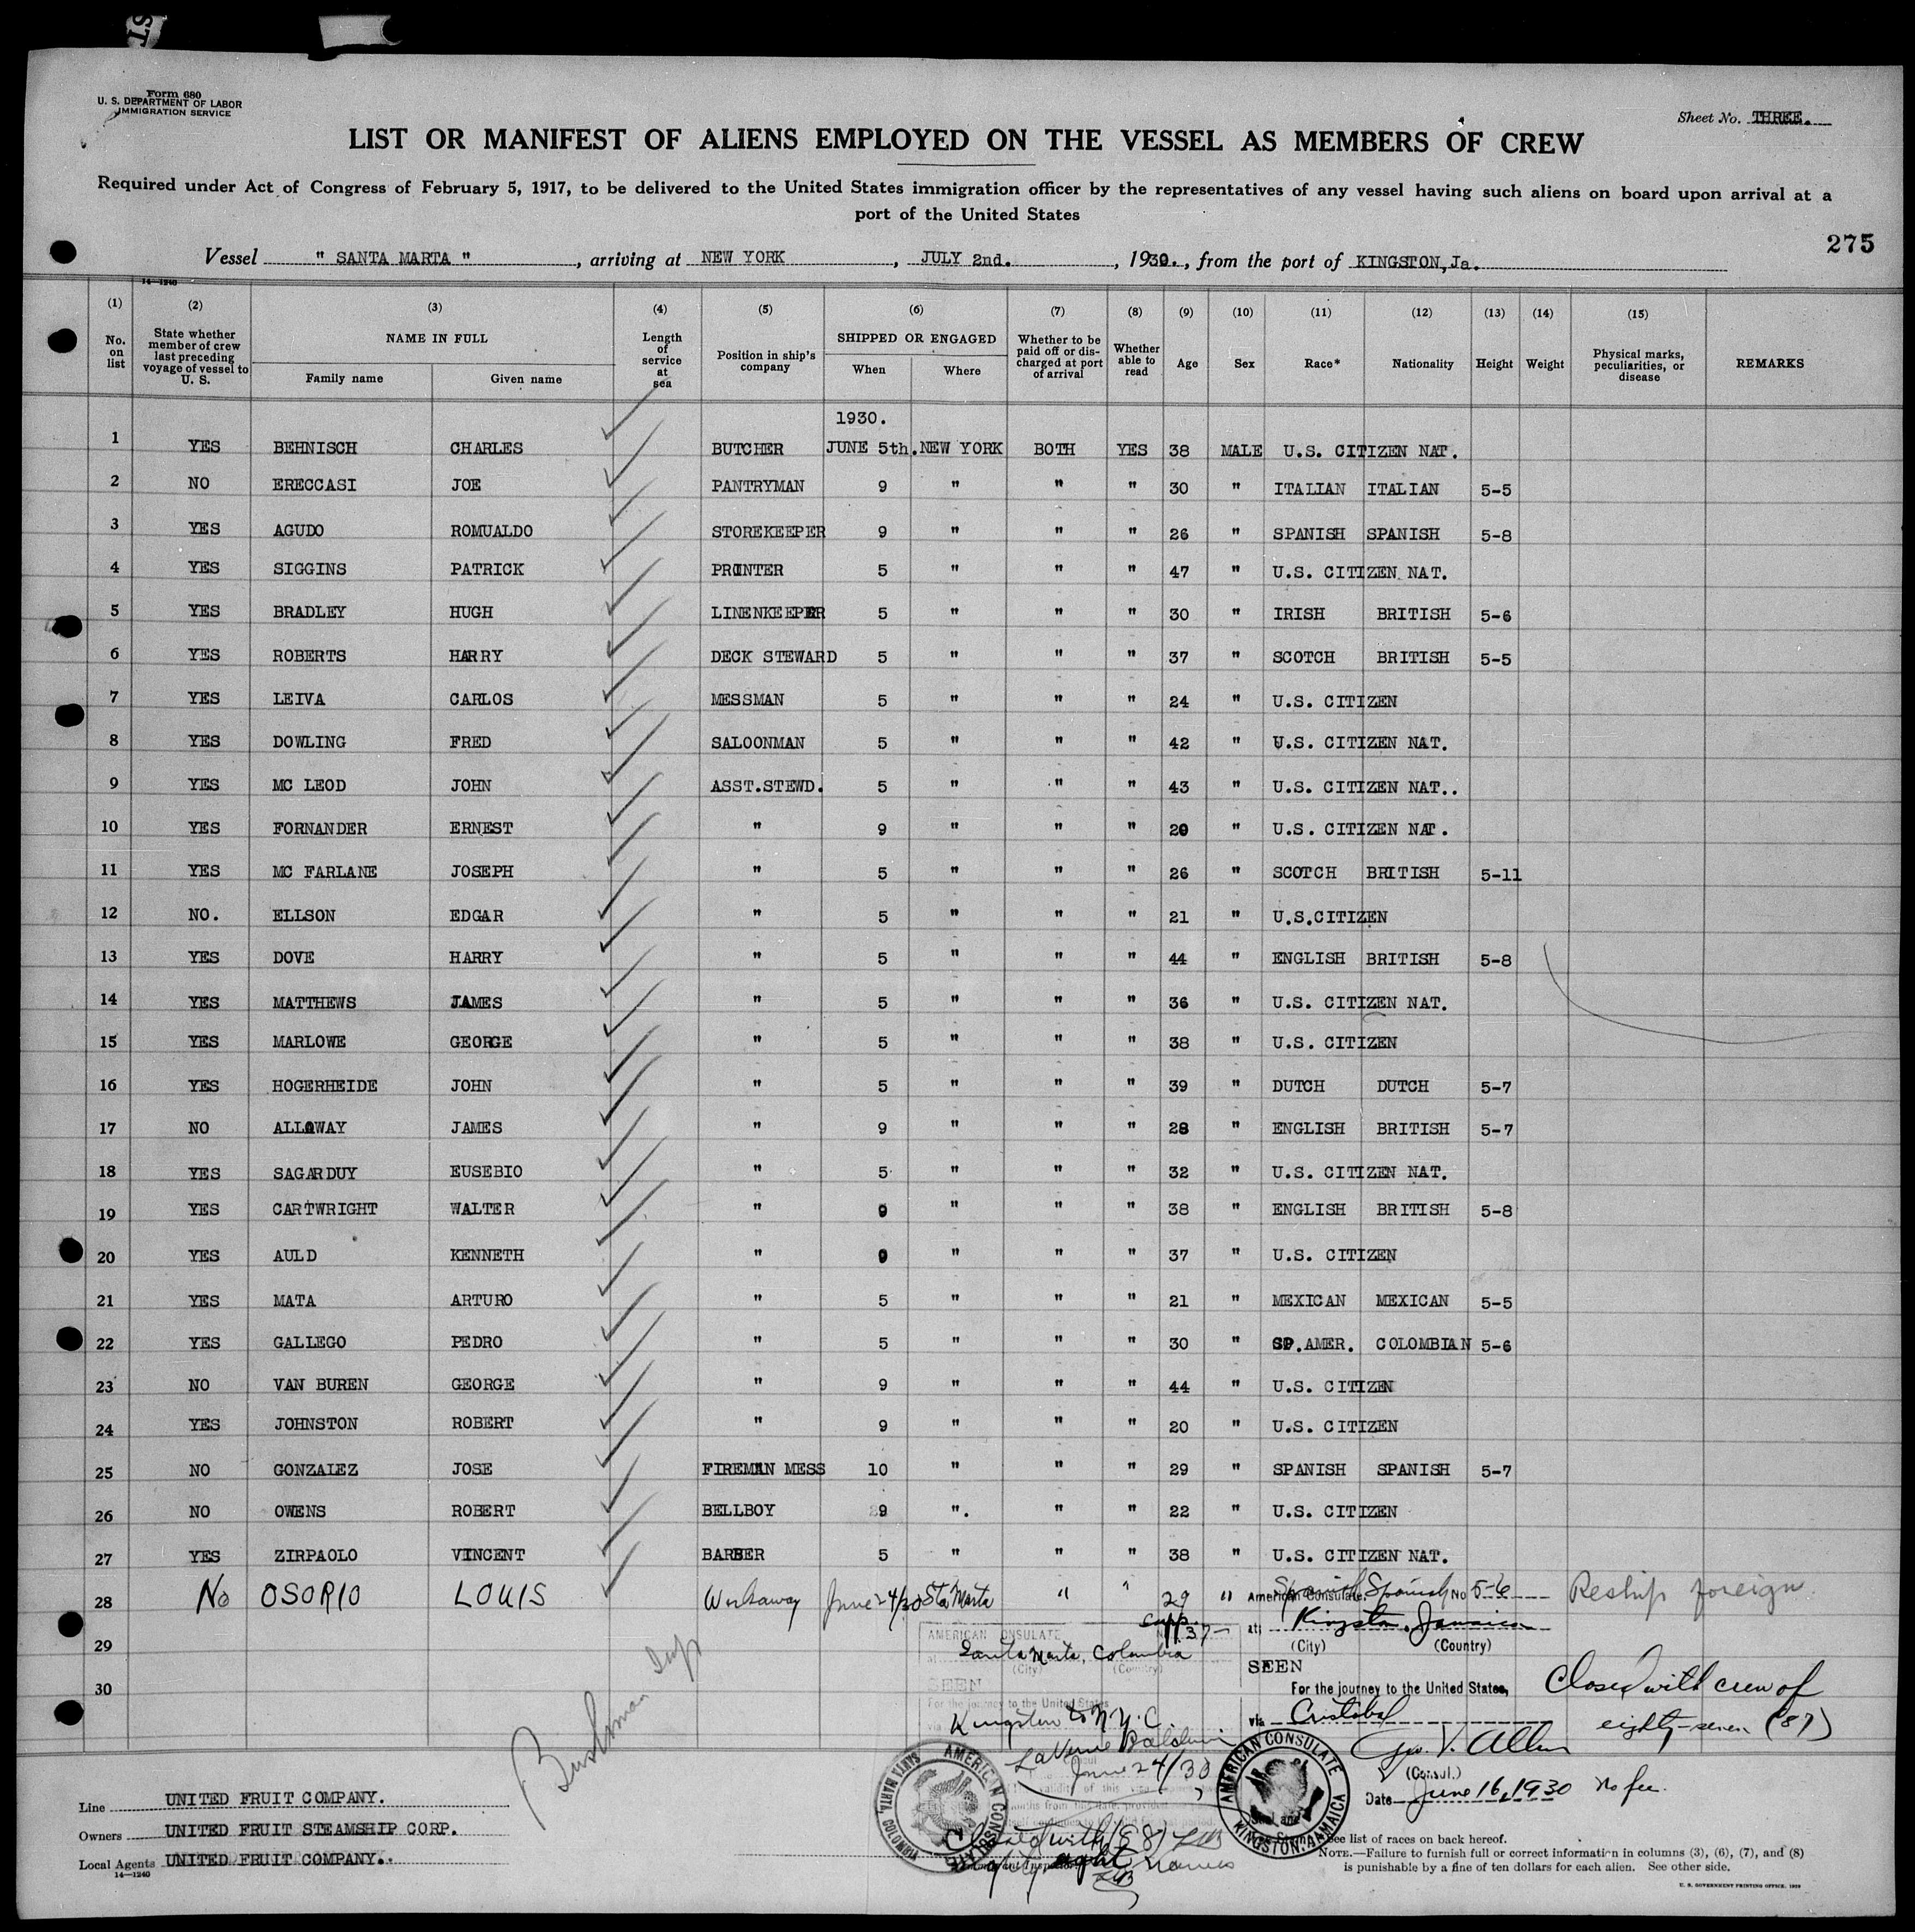 Form 680
U. S. DEPARTMENT OF LABOR
IMMIGRATION SERVICE
Sheet No. THREE.
LIST OR MANIFEST OF ALIENS EMPLOYED ON THE VESSEL AS MEMBERS OF CREW
Required under Act of Congress of February 5, 1917, to be delivered to the United States immigration officer by the representatives of any vessel having such aliens on board upon arrival at a
port of the United States
275
Vessel " SANTA MARTA " , arriving at NEW YORK , JULY 2nd. , 1930. , from the port of KINGSTON,Ja.
14—1240
(1) (2) (3) (4) (5) (6) (7) (8) (9) (10) (11) (12) (13) (14) (15)
No. on list State whether member of crew last preceding voyage of vessel to U. S. NAME IN FULL Family name Given name Length of service at sea Position in ship's company SHIPPED OR ENGAGED When Where Whether to be paid off or discharged at port of arrival Whether able to read Age Sex Race* Nationality Height Weight Physical marks, peculiarities, or disease REMARKS
1930.
1 YES BEHNISCH CHARLES BUTCHER JUNE 5th. NEW YORK BOTH YES 38 MALE U.S. CITIZEN NAT.
2 NO ERECCASI JOE PANTRYMAN 9 " " " 30 " ITALIAN ITALIAN 5-5
3 YES AGUDO ROMUALDO STOREKEEPER 9 " " " 26 " SPANISH SPANISH 5-8
4 YES SIGGINS PATRICK PRINTER 5 " " " 47 " U.S. CITIZEN NAT.
5 YES BRADLEY HUGH LINENKEEPER 5 " " " 30 " IRISH BRITISH 5-6
6 YES ROBERTS HARRY DECK STEWARD 5 " " " 37 " SCOTCH BRITISH 5-5
7 YES LEIVA CARLOS MESSMAN 5 " " " 24 " U.S. CITIZEN
8 YES DOWLING FRED SALOONMAN 5 " " " 42 " U.S. CITIZEN NAT.
9 YES MC LEOD JOHN ASST.STEWD. 5 " " " 43 " U.S. CITIZEN NAT..
10 YES FORNANDER ERNEST " 9 " " " 20 " U.S. CITIZEN NAT.
11 YES MC FARLANE JOSEPH " 5 " " " 26 " SCOTCH BRITISH 5-11
12 NO. ELLSON EDGAR " 5 " " " 21 " U.S.CITIZEN
13 YES DOVE HARRY " 5 " " " 44 " ENGLISH BRITISH 5-8
14 YES MATTHEWS JAMES " 5 " " " 36 " U.S. CITIZEN NAT.
15 YES MARLOWE GEORGE " 5 " " " 38 " U.S. CITIZEN
16 YES HOGERHEIDE JOHN " 5 " " " 39 " DUTCH DUTCH 5-7
17 NO ALLOWAY JAMES " 9 " " " 28 " ENGLISH BRITISH 5-7
18 YES SAGARDUY EUSEBIO " 5 " " " 32 " U.S. CITIZEN NAT.
19 YES CARTWRIGHT WALTER " 9 " " " 38 " ENGLISH BRITISH 5-8
20 YES AULD KENNETH " 9 " " " 37 " U.S. CITIZEN
21 YES MATA ARTURO " 5 " " " 21 " MEXICAN MEXICAN 5-5
22 YES GALLEGO PEDRO " 5 " " " 30 " SP.AMER. COLOMBIAN 5-6
23 NO VAN BUREN GEORGE " 9 " " " 44 " U.S. CITIZEN
24 YES JOHNSTON ROBERT " 9 " " " 20 " U.S. CITIZEN
25 NO GONZALEZ JOSE FIREMAN MESS 10 " " " 29 " SPANISH SPANISH 5-7
26 NO OWENS ROBERT BELLBOY 9 ". " " 22 " U.S. CITIZEN
27 YES ZIRPAOLO VINCENT BARBER 5 " " " 38 " U.S. CITIZEN NAT.
28 No OSORIO LOUIS Workaway June 24/30 Sta Marta " " 29 " Spanish Spanish 5-6 Reship foreign
29
30
AMERICAN CONSULATE
Santa Marta, Colombia
(City) (Country)
SEEN
For the journey to the United States
via Kingston to N.Y.C.
LaVerne Baldwin
June 24/30
American Consulate, No
at: Kingston, Jamaica
(City) (Country)
SEEN
For the journey to the United States,
via Cristobal
Geo. V. Allen
(Consul.)
Date June 16, 1930 No fee.
Closed with crew of
eighty-seven (87)
Bushman
AMERICAN CONSULATE SANTA MARTA, COLOMBIA
AMERICAN CONSULATE KINGSTON, JAMAICA
Closed with (88)
eighty eight names
Line UNITED FRUIT COMPANY.
Owners UNITED FRUIT STEAMSHIP CORP.
Local Agents UNITED FRUIT COMPANY.
14—1240
See list of races on back hereof.
NOTE.—Failure to furnish full or correct information in columns (3), (6), (7), and (8)
is punishable by a fine of ten dollars for each alien. See other side.
U. S. GOVERNMENT PRINTING OFFICE, 1929